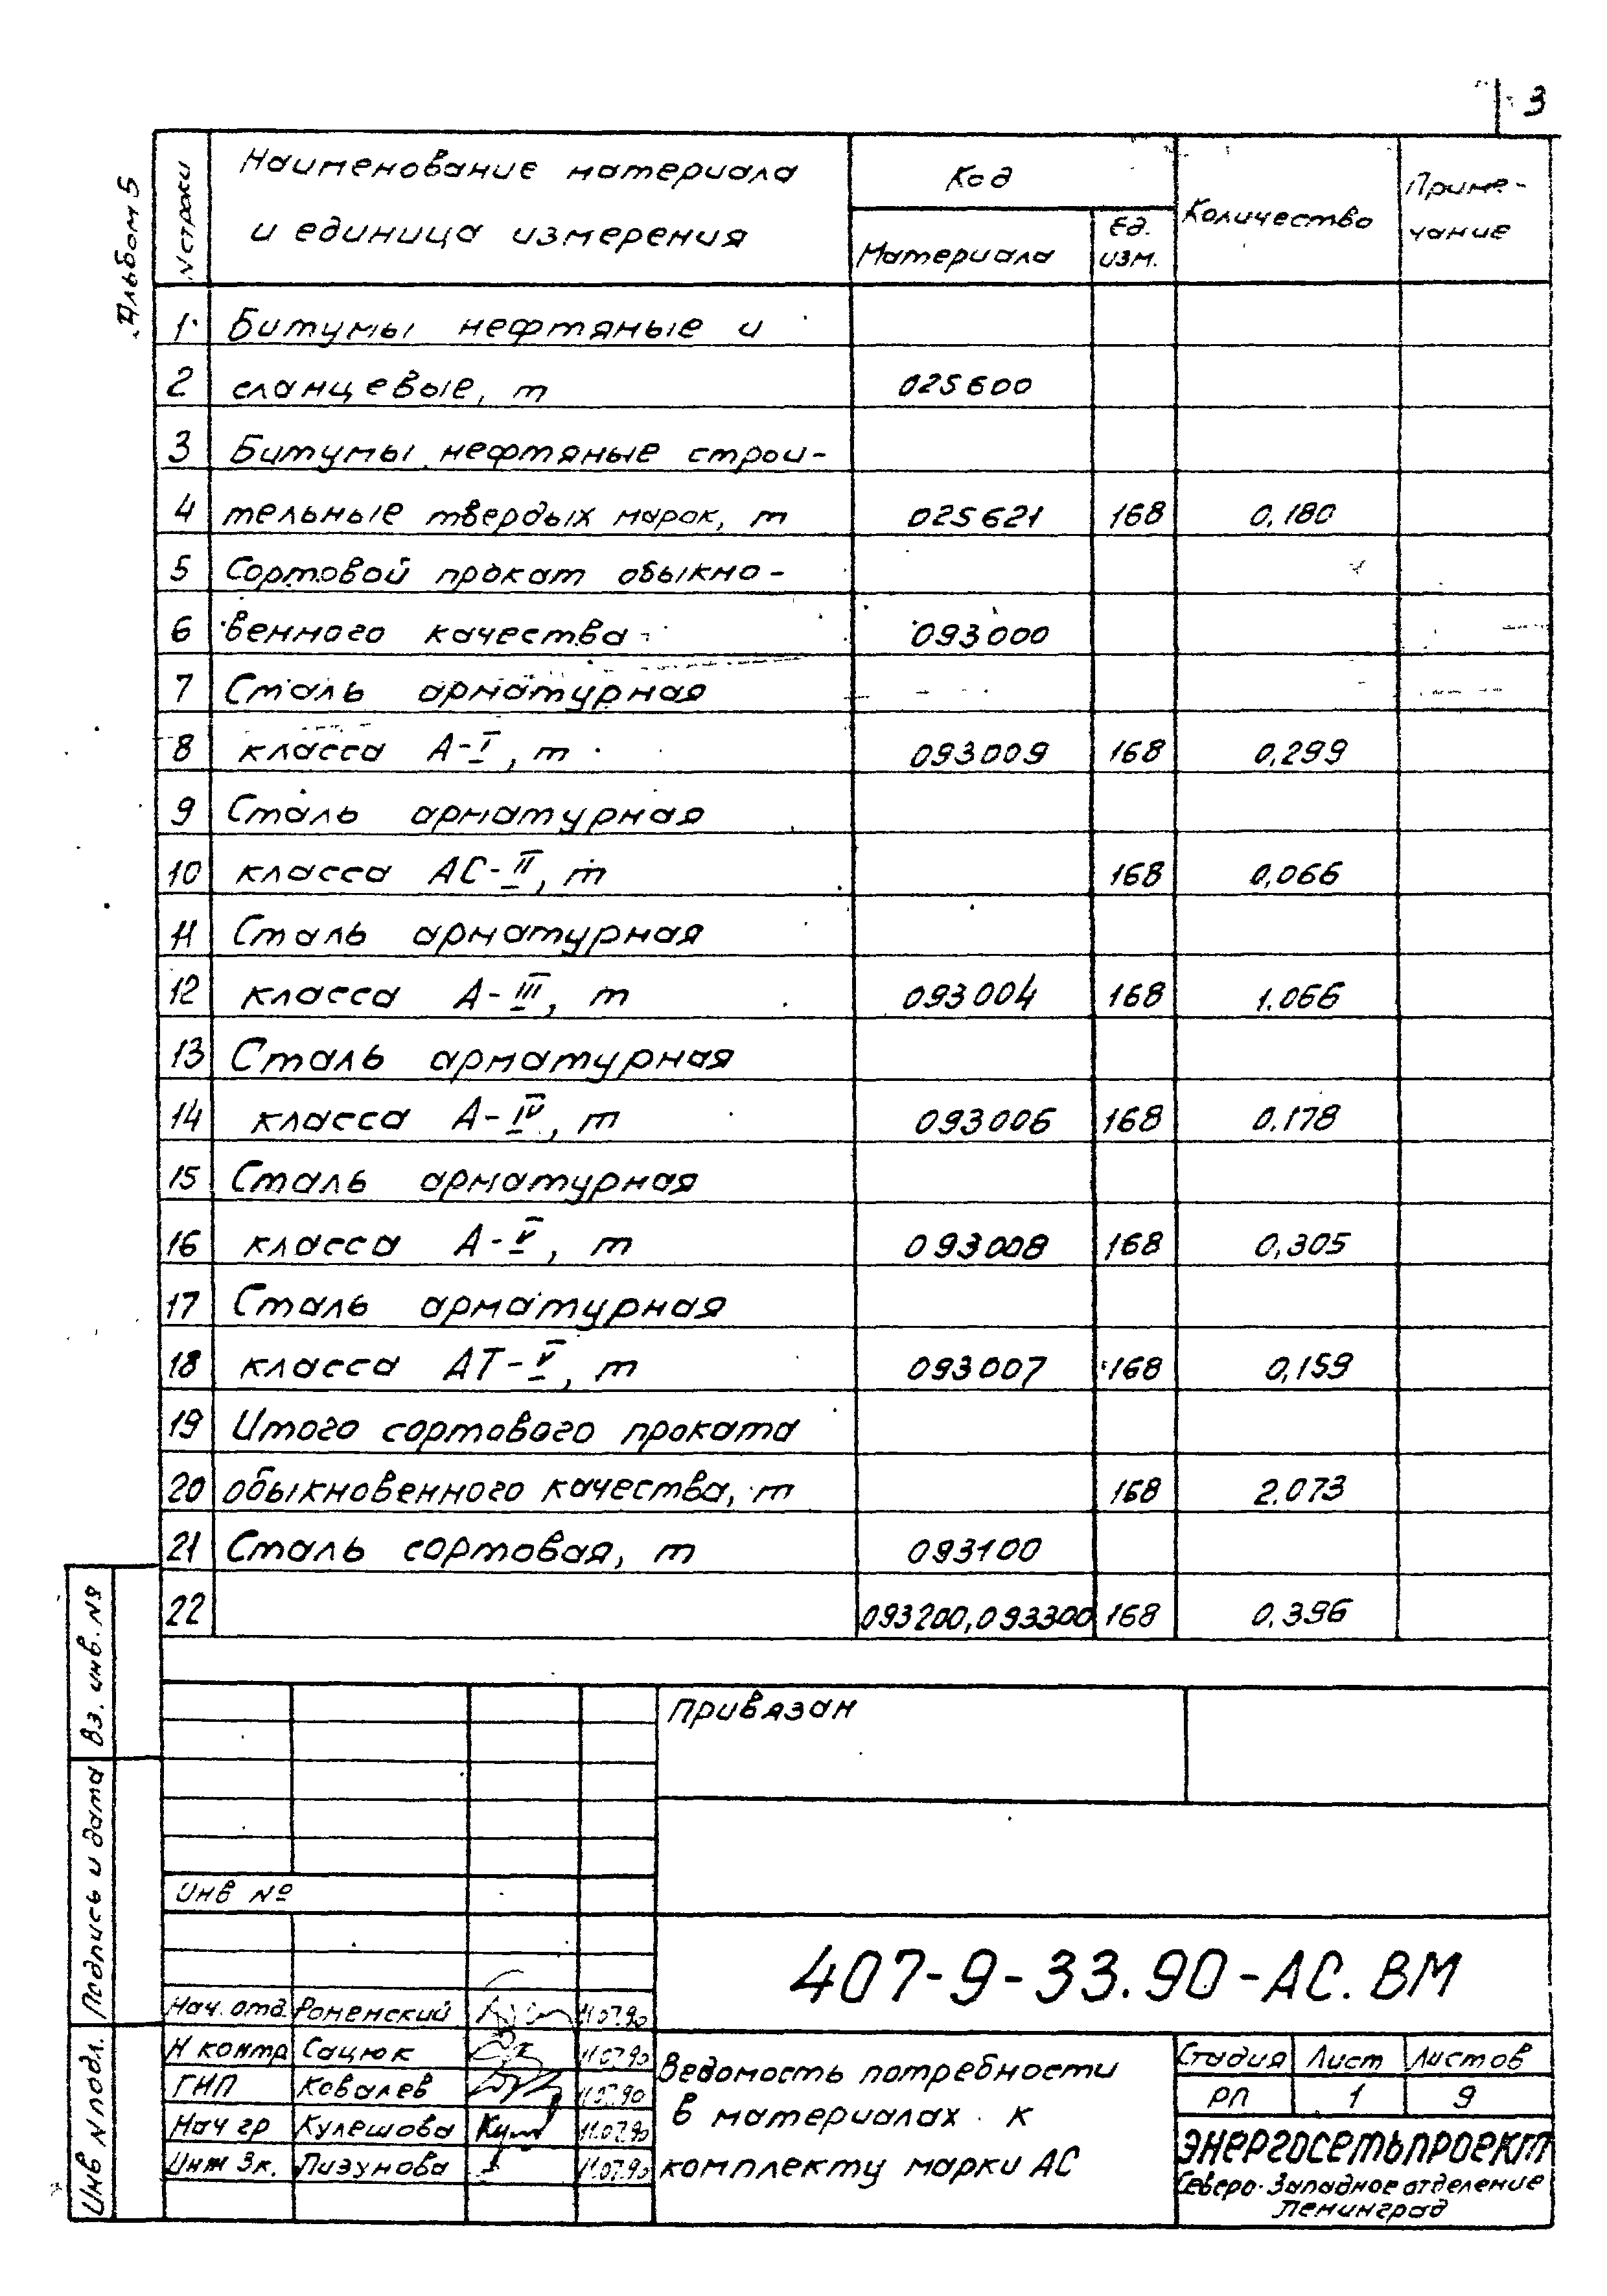 3
Альбом 5
N строки
Наименование материала
и единица измерения
Код
Материала
Ед.
изм.
Количество
Приме-
чание
1 Битумы нефтяные и
2 сланцевые, т 025600
3 Битумы нефтяные строи-
4 тельные твердых марок, т 025621 168 0,180
5 Сортовой прокат обыкно-
6 венного качества 093000
7 Сталь арматурная
8 класса А-I, т 093009 168 0,299
9 Сталь арматурная
10 класса АС-II, т 168 0,066
11 Сталь арматурная
12 класса А-III, т 093004 168 1.066
13 Сталь арматурная
14 класса А-IV, т 093006 168 0.178
15 Сталь арматурная
16 класса А-V, т 093008 168 0,305
17 Сталь арматурная
18 класса АТ-V, т 093007 168 0,159
19 Итого сортового проката
20 обыкновенного качества, т 168 2.073
21 Сталь сортовая, т 093100
22 093200,093300 168 0.396
Вз. инв. №
Подпись и дата
Инв N подл.
Привязан
Инв №
407-9-33.90-АС.ВМ
Нач. отд. Роненский 11.07.90
Н контр Сацюк 11.07.90
ГИП Ковалев 11.07.90
Нач гр Кулешова 11.07.90
Инж 3к. Пизунова 11.07.90
Ведомость потребности
в материалах к
комплекту марки АС
Стадия Лист Листов
РП 1 9
ЭНЕРГОСЕТЬПРОЕКТ
Северо-Западное отделение
Ленинград